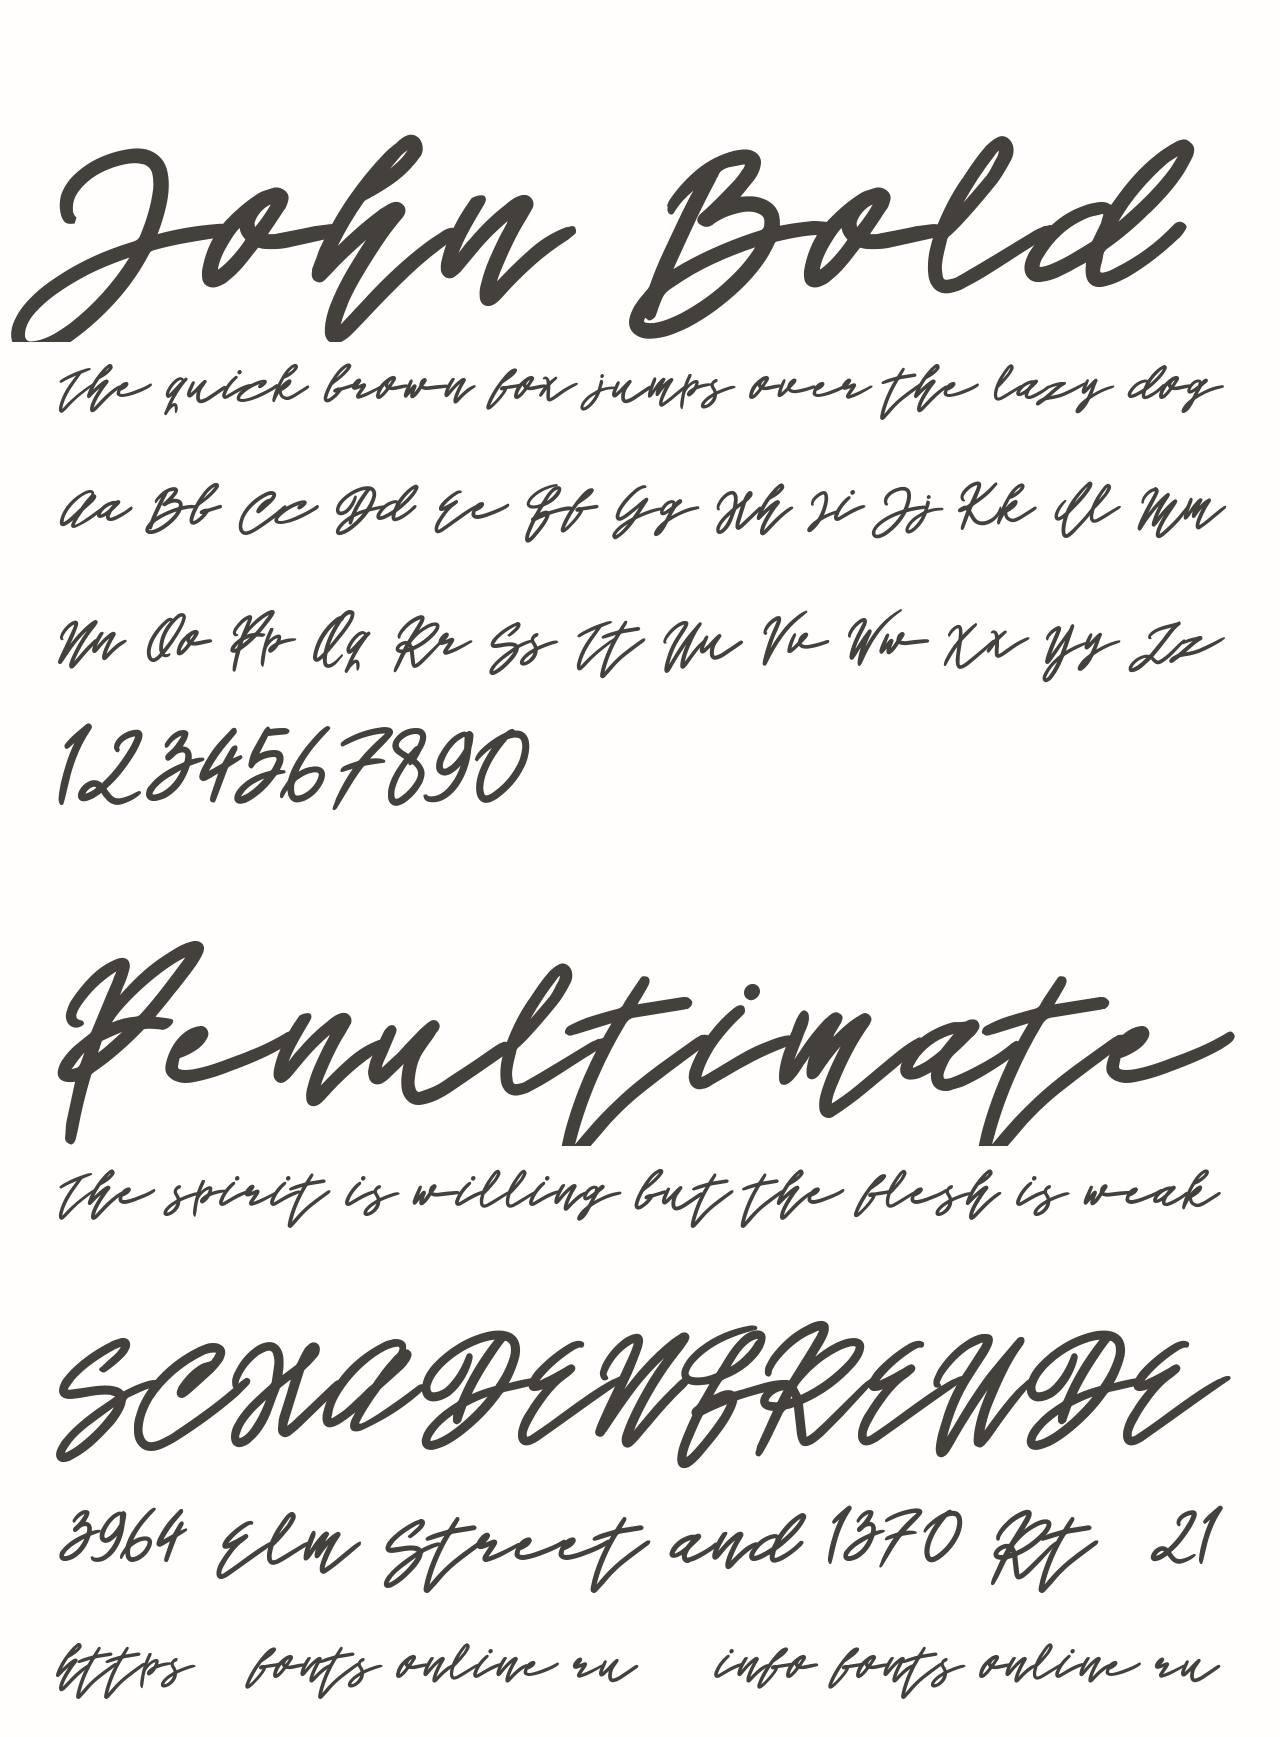 John Bold
The quick brown fox jumps over the lazy dog
Aa Bb Cc Dd Ee Ff Gg Hh Ii Jj Kk Ll Mm
Nn Oo Pp Qq Rr Ss Tt Uu Vv Ww Xx Yy Zz
1234567890
Penultimate
The spirit is willing but the flesh is weak
SCHADENFREUDE
3964 Elm Street and 1370 Rt 21
https fonts online ru info fonts online ru